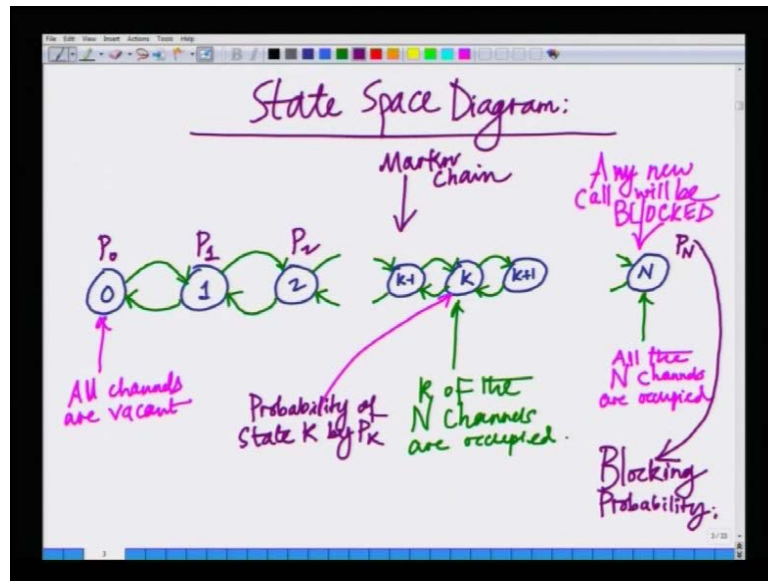 File Edit View Insert Actions Tools Help
State Space Diagram:
Markov
Chain
Any new
call will be
BLOCKED
P₀ P₁ P₂ P_N
0 1 2 K-1 K K+1 N
All channels
are vacant
Probability of
state K by P_K
K of the
N Channels
are occupied.
All the
N Channels
are occupied
Blocking
Probability.
3
3/33